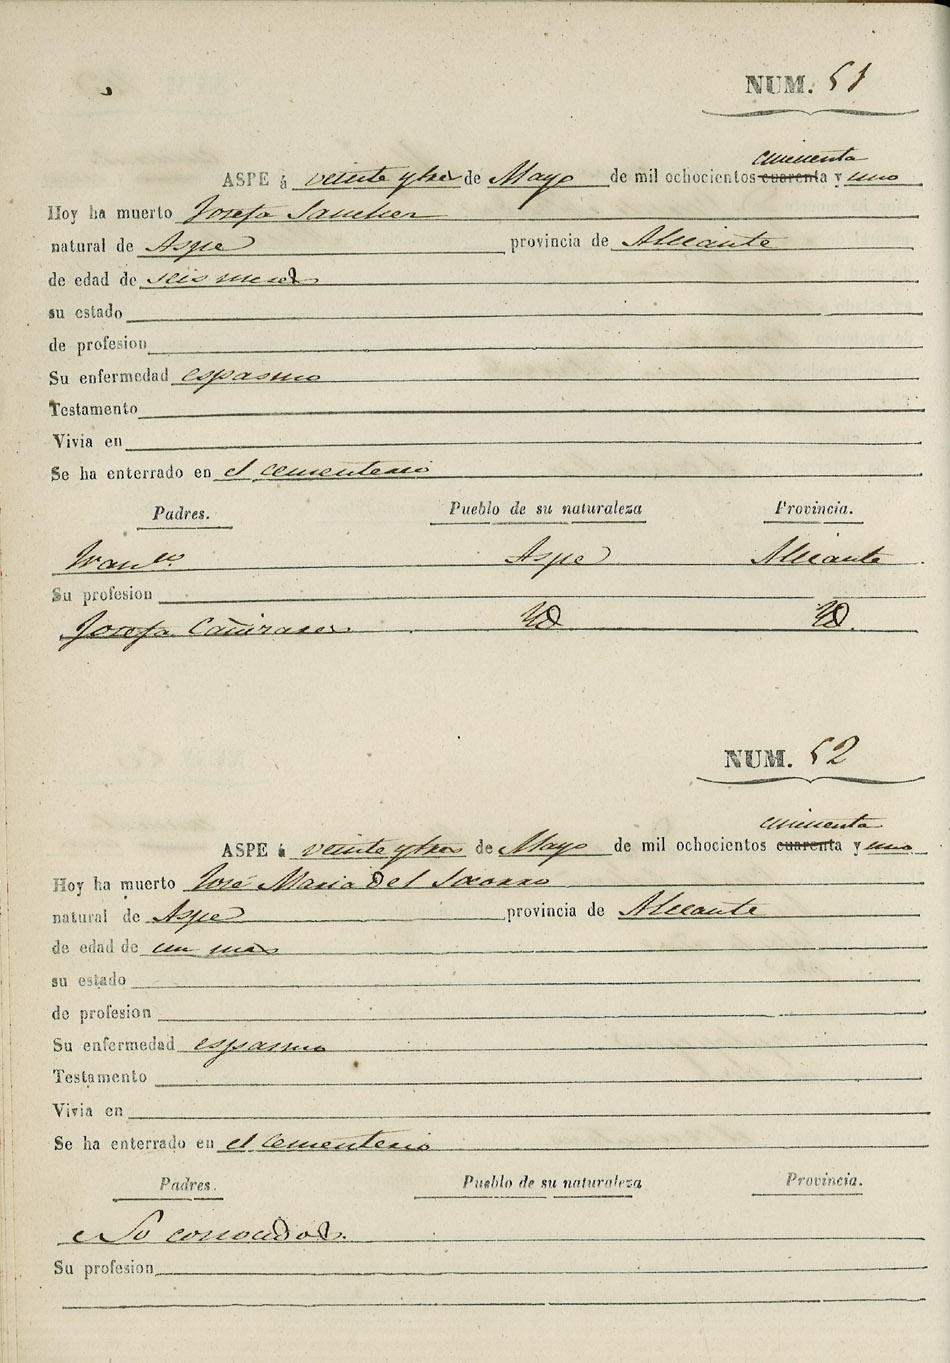 NUM. 51
cincuenta
ASPE á veinte y tres de Mayo de mil ochocientos cuarenta y uno
Hoy ha muerto Josefa Sanchez
natural de Aspe provincia de Alicante
de edad de seis meses
su estado
de profesion
Su enfermedad espasmo
Testamento
Vivia en
Se ha enterrado en el cementerio
Padres. Pueblo de su naturaleza Provincia.
Franco. Aspe Alicante
Su profesion
Josefa Cañizares Yd Yd.
NUM. 52
cincuenta
ASPE á veinte y tres de Mayo de mil ochocientos cuarenta y uno
Hoy ha muerto José Maria Del Socorro
natural de Aspe provincia de Alicante
de edad de un mes
su estado
de profesion
Su enfermedad espasmo
Testamento
Vivia en
Se ha enterrado en el cementerio
Padres. Pueblo de su naturaleza Provincia.
No conocidos.
Su profesion